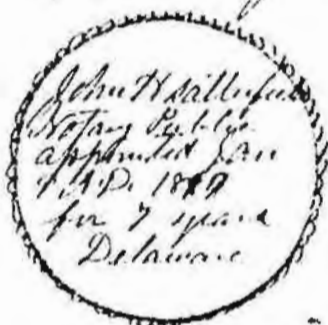 John H
Notary Public
appointed Jan
A.D. 18
for 7 years
Delaware